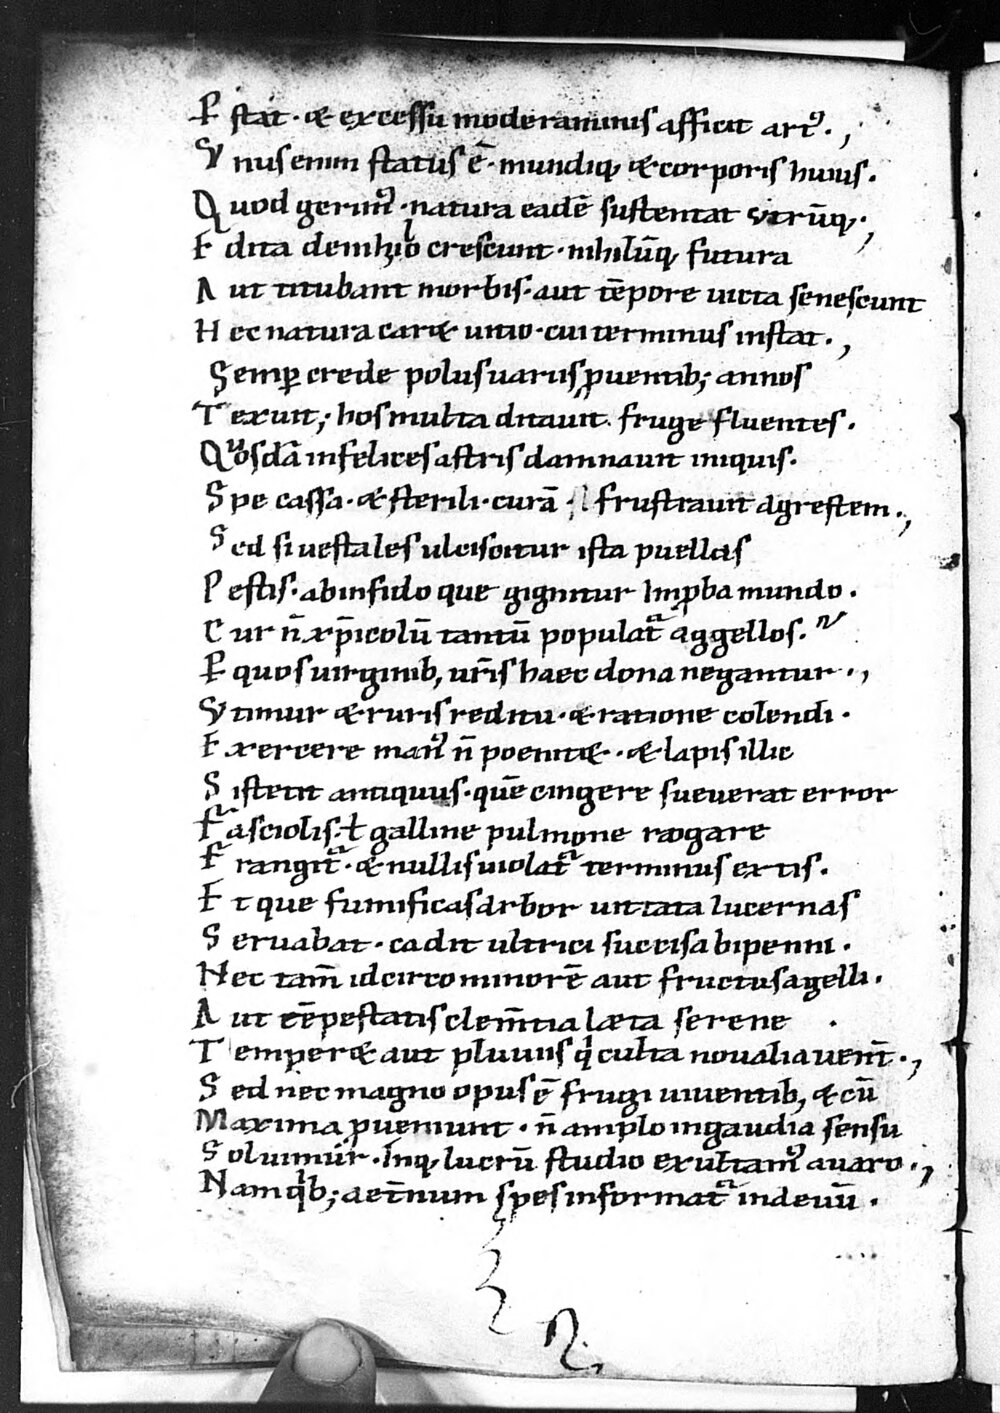 P̄ stat · & excessu moderaminis afficit art᷒ · ,
V nus enim status ē · mundiq; & corporis huius .
Q uod gerim᷒ · natura eadē sustentat vtrūq; · ,
E dita dein hꝫ io crescunt · nihilūq; futura
A ut titubant morbis · aut tēpore uicta senescunt
H ec natura car& uitio · cui terminus instat . ,
Semp̱ crede polus uariis ꝓuentib; annos
T exuit ; hos multa ditauit . fruge fluentes .
Quosdā infelices astris damnauit iniquis .
S pe cassa · & sterili · curā · frustrauit agrestem . ,
S ed si uestales ulciscitur ista puellas
P estis · ab infido que gignitur Imꝓba mundo .
C ur n̄ xp̄icolū tantū populat᷑ aggellos .
P̱ quos uirginib; ur̄is haec dona negantur · ,
V timur & ruris reditu · & ratione colendi .
E xercere man᷒ n̄ poenit& · & lapis illic
S i stetit antiquus · quē cingere sueuerat error
F asciolis · ł galline pulmone rogare
F rangit᷑ · & nullis uiolat᷑ terminus extis .
E t que fumificas arbor uittata lucernas
S eruabat · cadit ultrici succisa bipenni .
N ec tam̄ idcirco minorē aut fructus agelli .
A ut tēpestatis clem̄tia læta serene
T emper& aut pluuiis q̇ culta noualia uen̄t · ,
S ed nec magno opus ē frugi uiuentib; & cū
M axima ꝓueniunt · n̄ amplo in gaudia sensu
S oluimur · Inq; lucrū studio exultam᷒ auaro . ,
N am qⁱb; aet̄num spes informat᷑ in deuū .